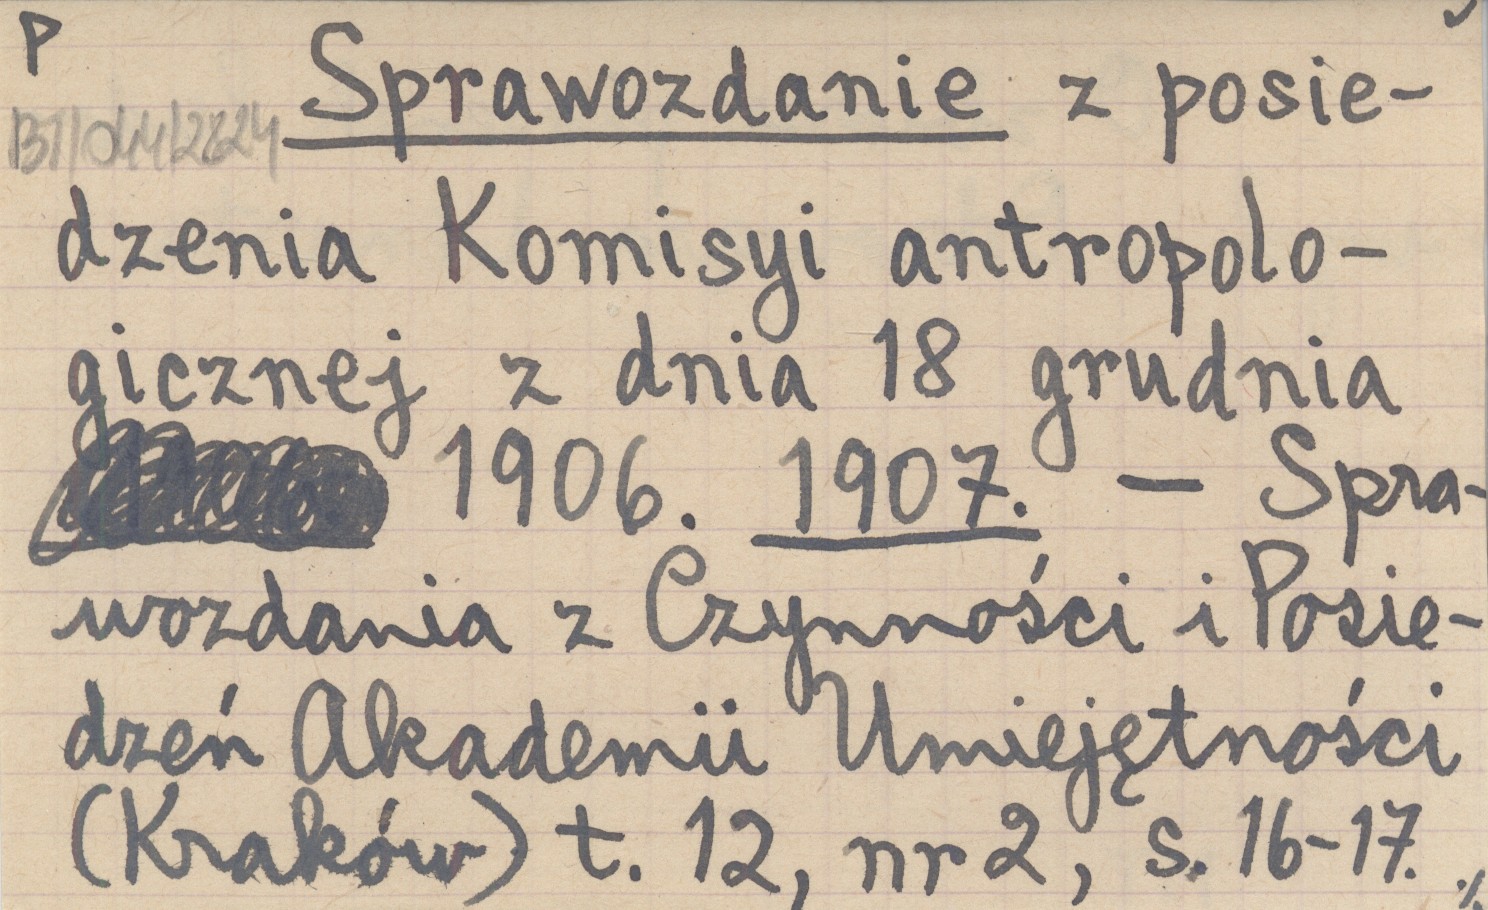 P
BT/044/2624
Sprawozdanie z posie-
dzenia Komisyi antropolo-
gicznej z dnia 18 grudnia
1906. 1907. — Spra-
wozdania z Czynności i Posie-
dzeń Akademii Umiejętności
(Kraków) t. 12, nr 2, s. 16-17.
./.